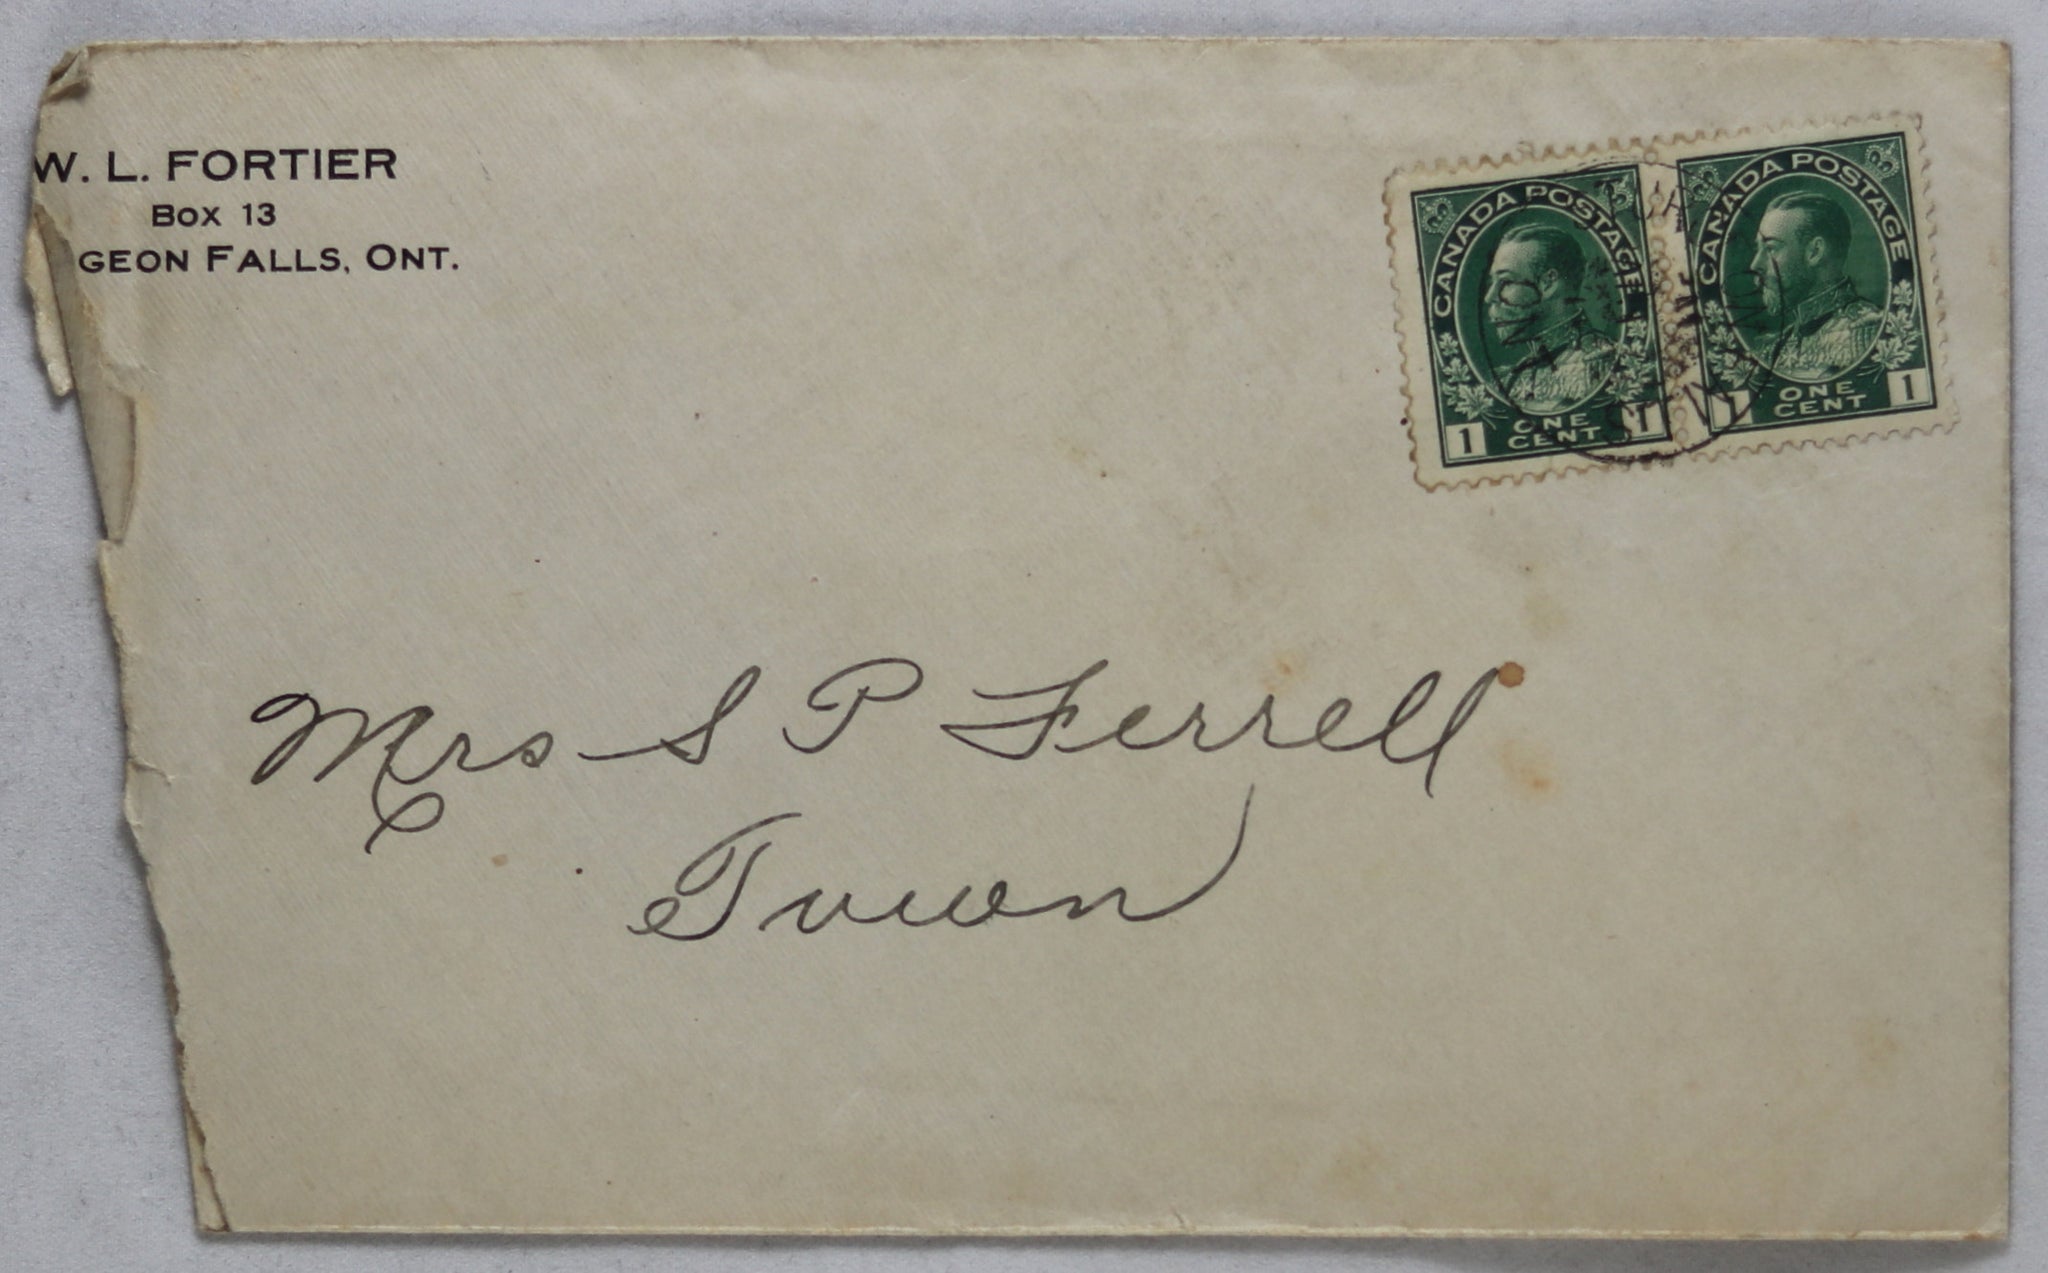 W. L. FORTIER
Box 13
GEON FALLS, ONT.
CANADA POSTAGE
1 ONE CENT 1
CANADA POSTAGE
1 ONE CENT 1
ONT
Mrs S P Ferrell
Town